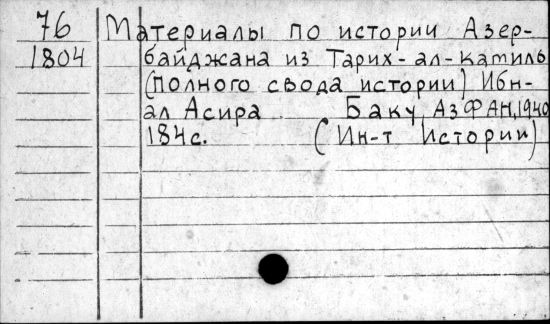 76 Материалы по истории Азер-
1804 байджана из Тарих-ал-камиль
(полного свода истории) Ибн-
ал Асира Баку, АзФАН, 1940
184с. (Ин-т Истории)